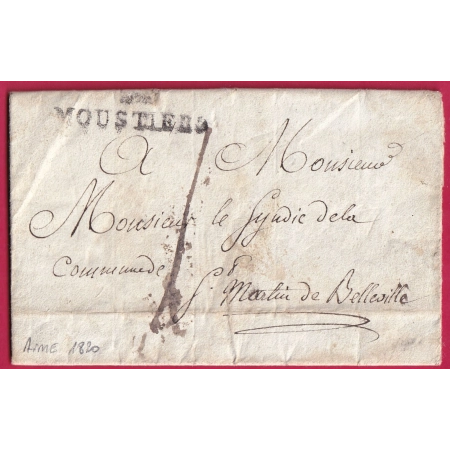 MOUSTIERS
A Monsieur
Monsieur le Syndic de la
Commune de St
Martin de Belleville
AIME 1820